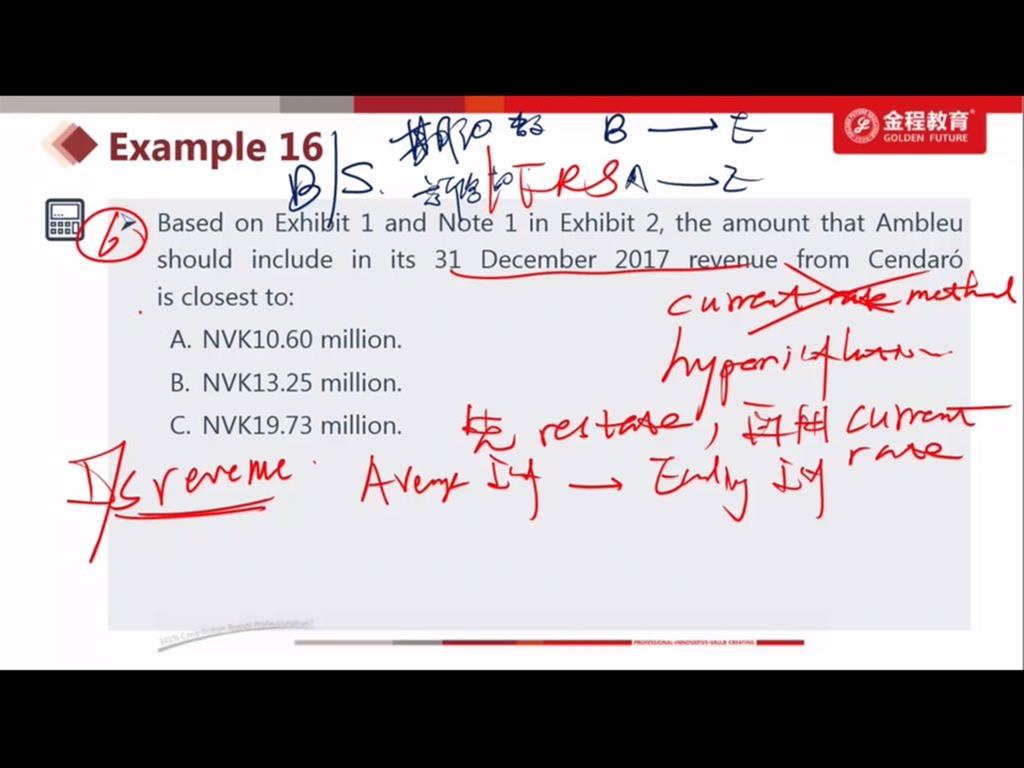 Example 16
B/S.
B → E
IFRS A → E
金程教育
GOLDEN FUTURE
6
Based on Exhibit 1 and Note 1 in Exhibit 2, the amount that Ambleu
should include in its 31 December 2017 revenue from Cendaró
is closest to:
A. NVK10.60 million.
B. NVK13.25 million.
C. NVK19.73 million.
current rate method
hyperinflation
先 restate, 再用 current
rate
I/S revenue
Average →
Ending
PROFESSIONAL·INNOVATIVE·VALUE CREATING